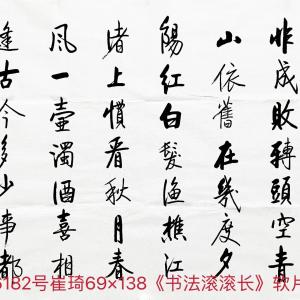 非成敗轉頭空青
山依舊在幾度夕
陽紅白髮漁樵江
渚上慣看秋月春
風一壺濁酒喜相
逢古今多少事都
6182号崔琦69×138《书法滚滚长》软片